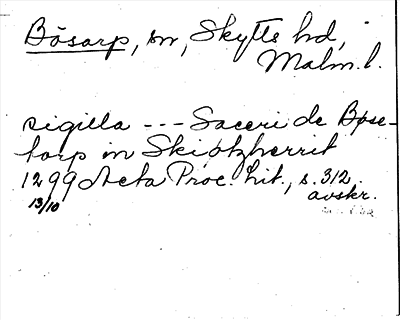 Bösarp, sn, Skytts hd,
Malm.l.
sigilla --- Saceri de Bøse-
torp in Skiøtzherrit
1299 Acta Proc. lit., s. 312
13/10 avskr.